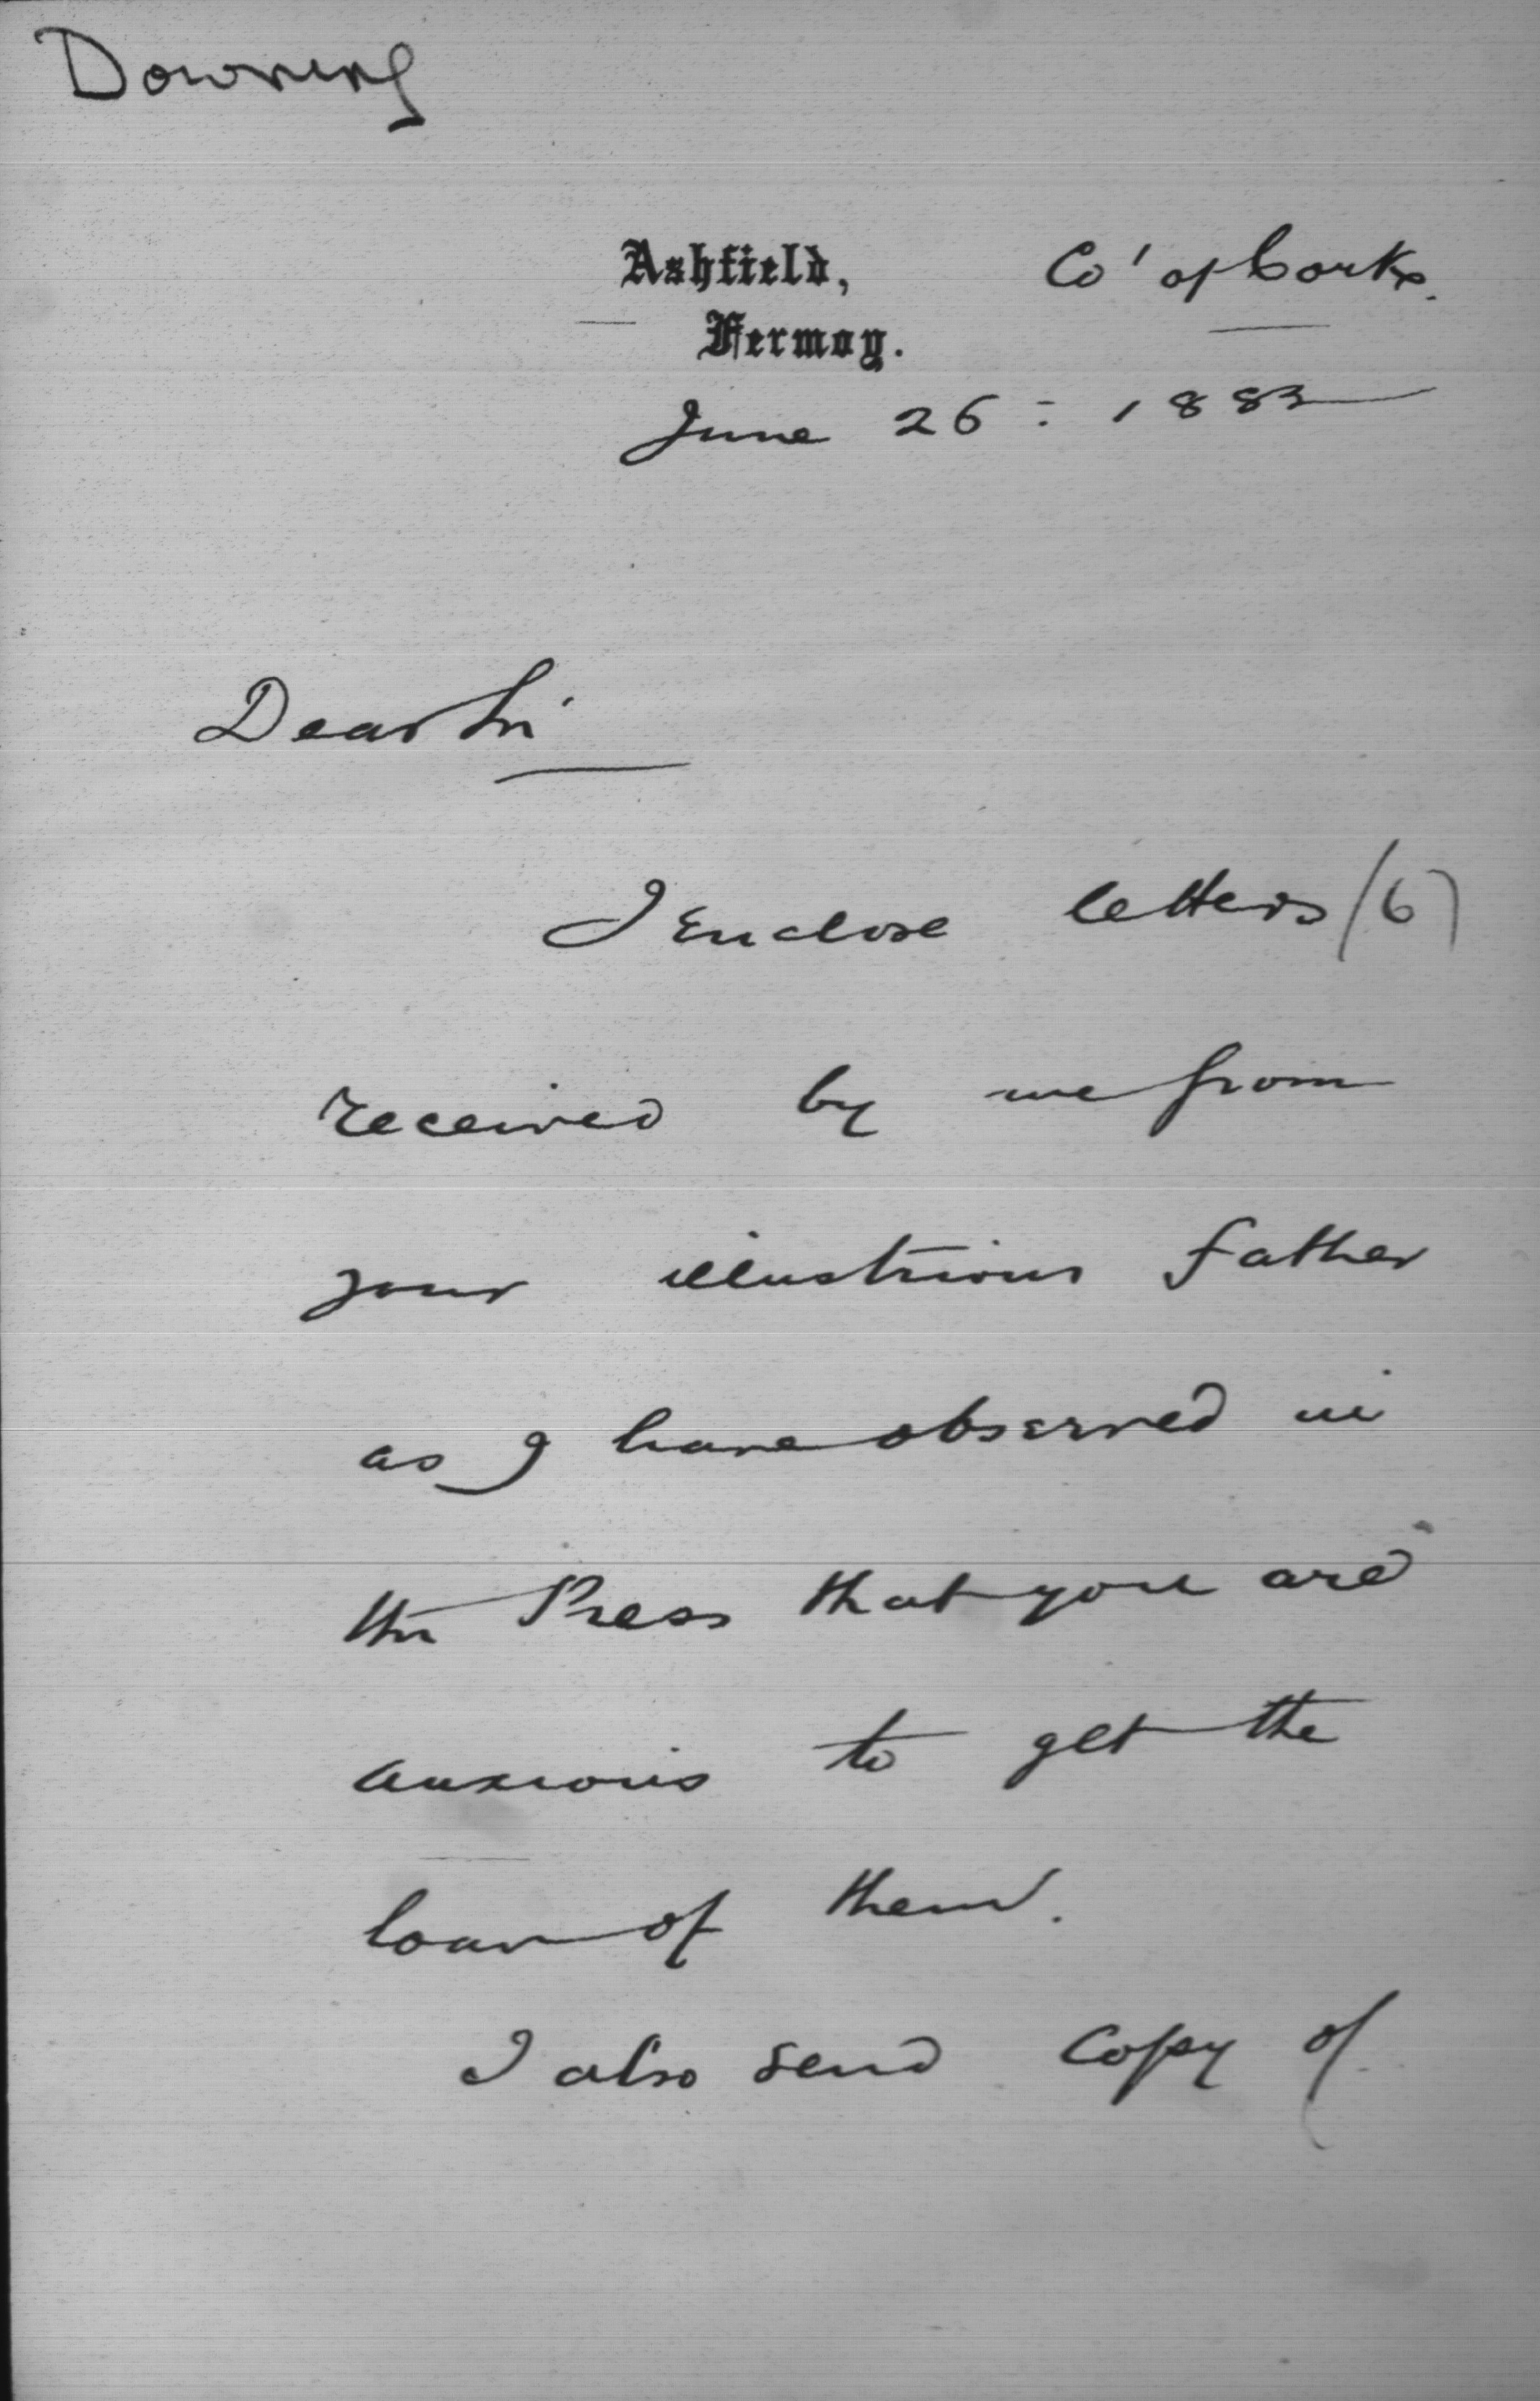 Downing
Ashfield, Co' of Cork.
Fermoy.
June 26: 1883
Dear Sir
I Enclose letters (6)
received by me from
your illustrious father
as I have observed in
the Press that you are
anxious to get the
loan of them.
I also send copy of